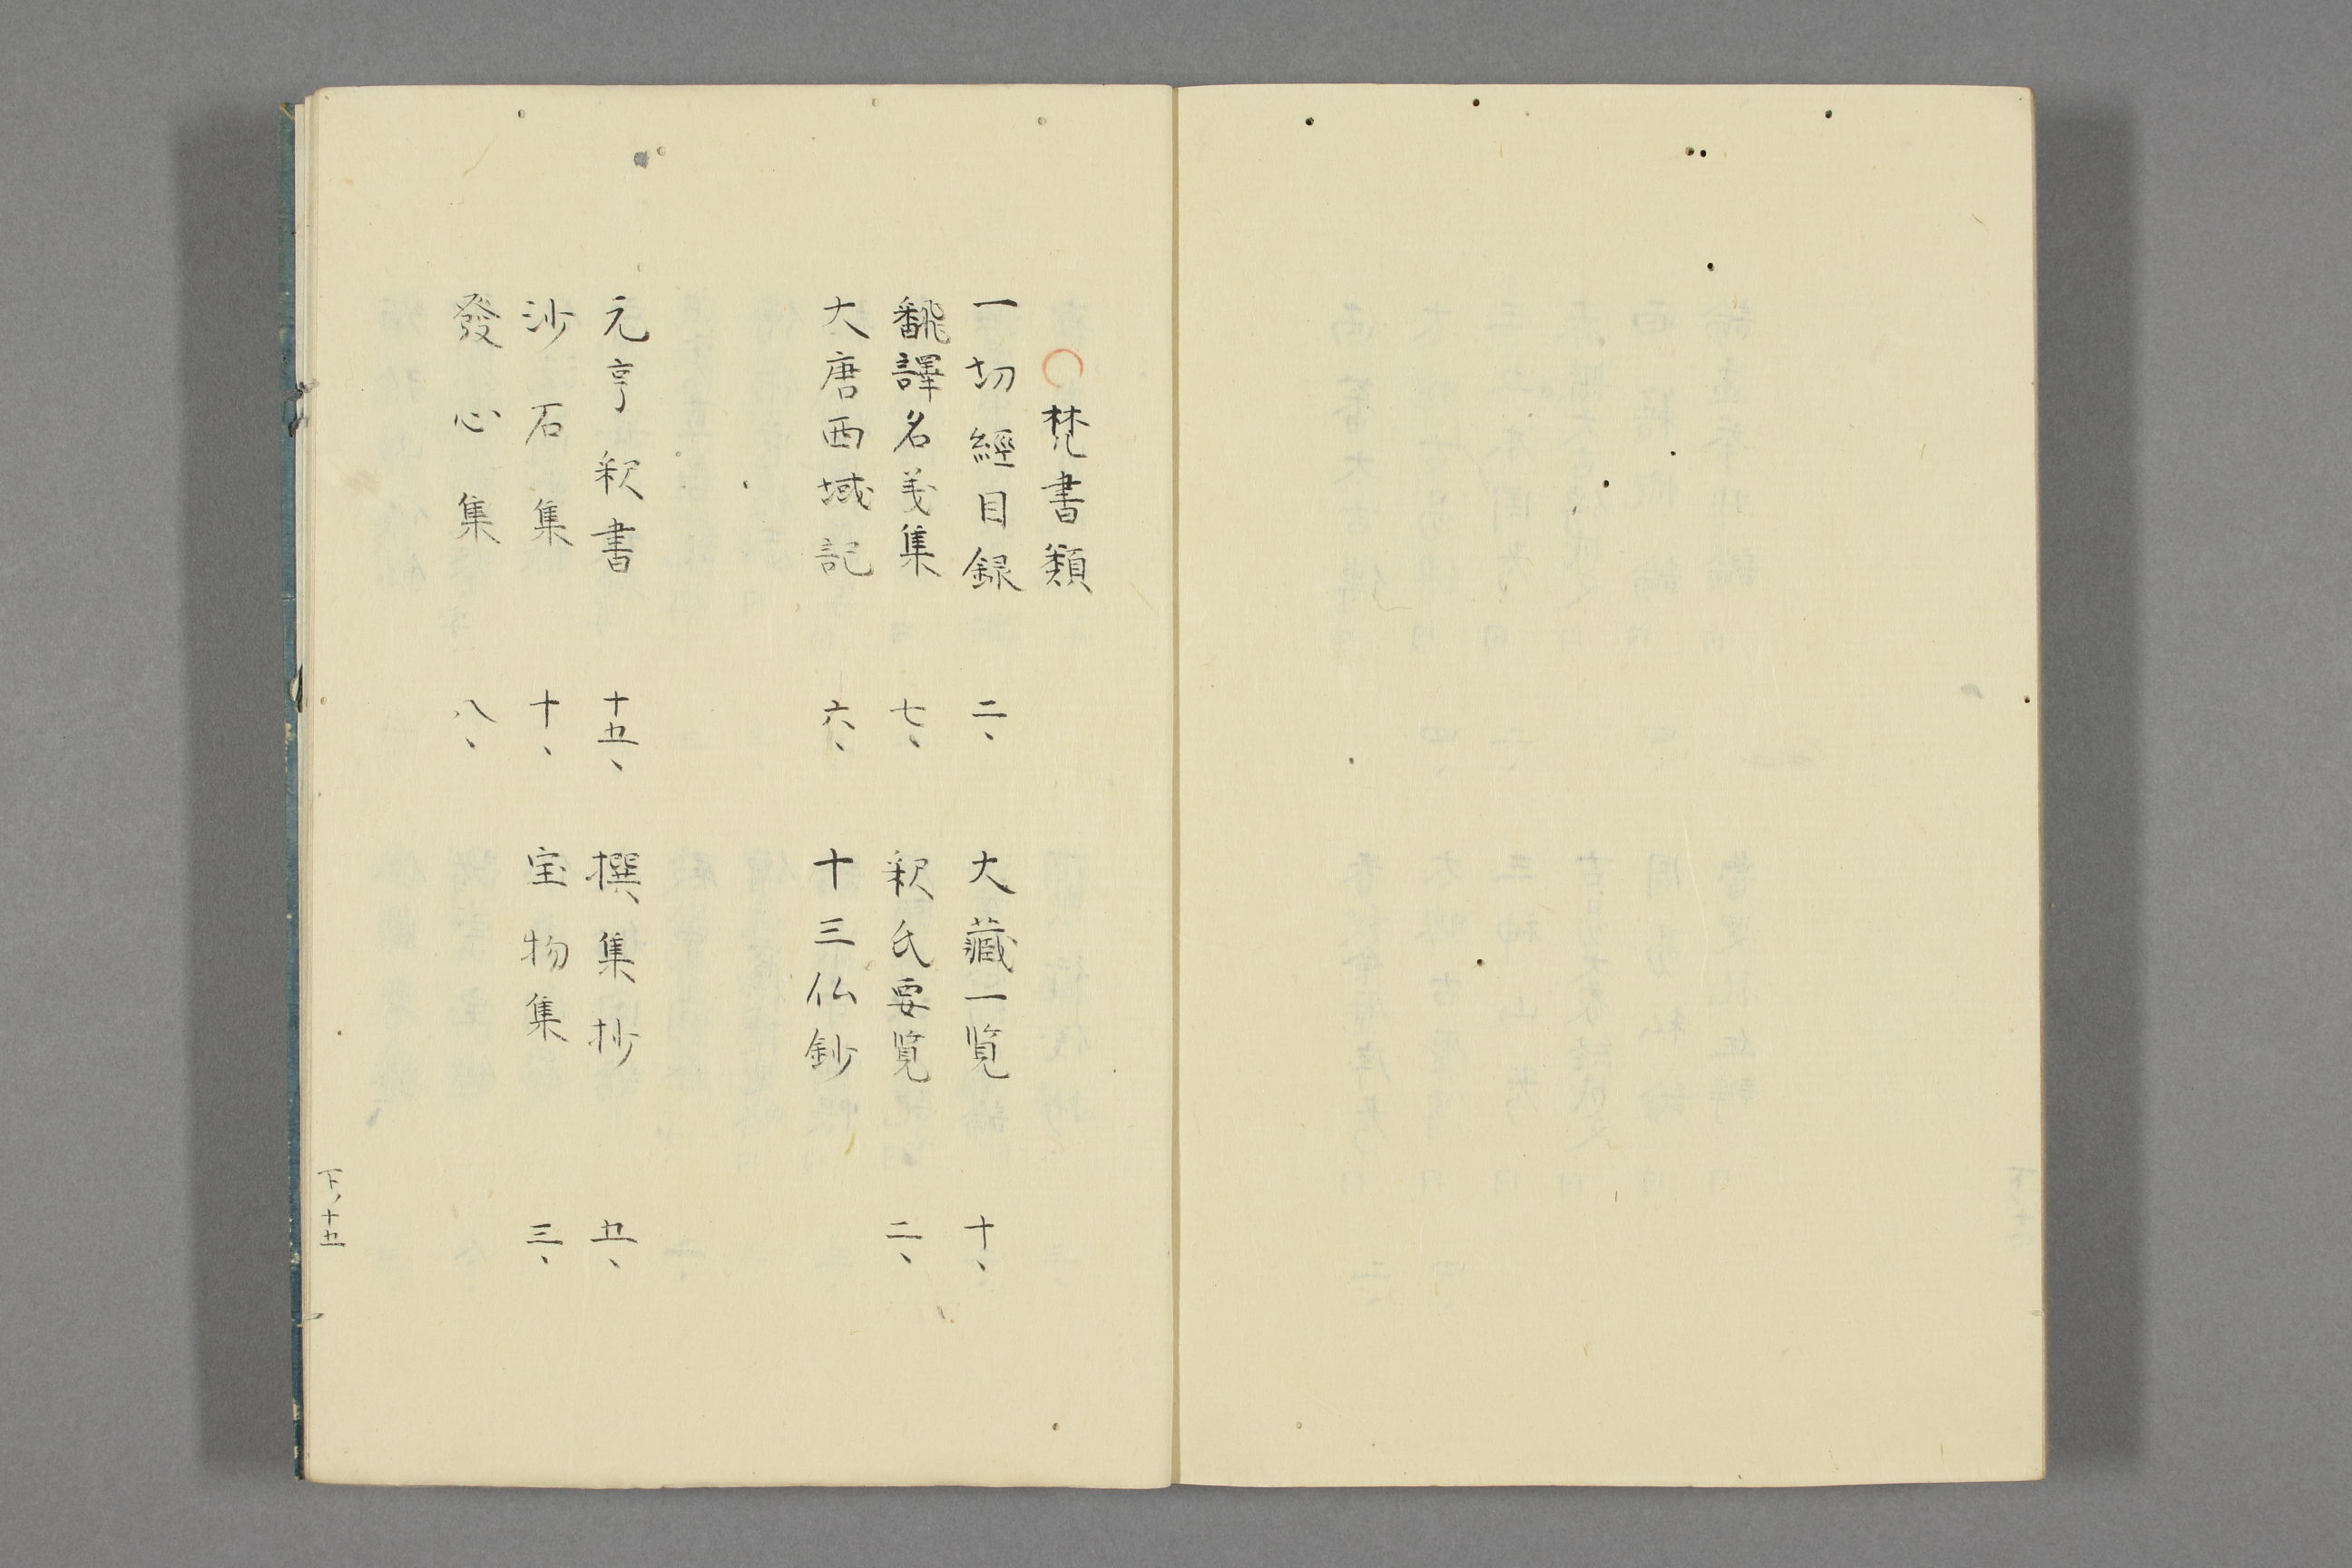 ○梵書類
一切經目録 二、 大藏一覧 十、
飜譯名義集 七、 釈氏要覧 二、
大唐西域記 六、 十三仏鈔
元亨釈書 十五、 撰集抄 五、
沙石集 十、 宝物集 三、
發心集 八、
下ノ十五